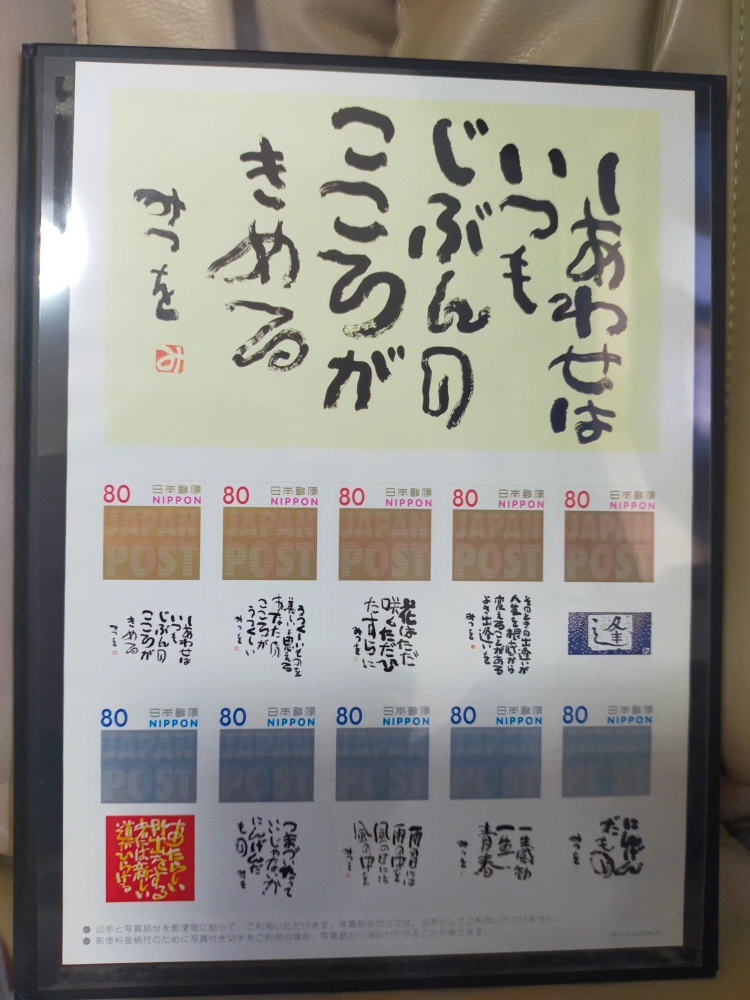 しあわせは
いつも
じぶんの
こころが
きめる
みつを
み
80 日本郵便 NIPPON
80 日本郵便 NIPPON
80 日本郵便 NIPPON
80 日本郵便 NIPPON
80 日本郵便 NIPPON
JAPAN POST
JAPAN POST
JAPAN POST
JAPAN POST
JAPAN POST
しあわせは
いつも
じぶんの
こころが
きめる
みつを
うつくしいものを
美しいと思える
あなたの
こころが
うつくしい
みつを
花はただ
咲くただひ
たすらに
みつを
そのときの出逢いが
人生を根底から
変えることがある
よき出逢いを
みつを
逢
80 日本郵便 NIPPON
80 日本郵便 NIPPON
80 日本郵便 NIPPON
80 日本郵便 NIPPON
80 日本郵便 NIPPON
JAPAN POST
JAPAN POST
JAPAN POST
JAPAN POST
JAPAN POST
あたらしい
門出をする
者には新しい
道がひらける
つまづいたって
いいじゃないか
にんげんだ
もの
みつを
雨の日には
雨の中を
風の日には
風の中を
みつを
一生感動
一生
青春
みつを
にんげん
だもの
みつを
●切手と写真部分を郵便物に貼って、ご利用いただけます。写真部分だけでは、切手としてご利用いただけません。
●郵便料金納付のために写真付き切手をご利用の場合、写真部分に消印がかかることがあります。